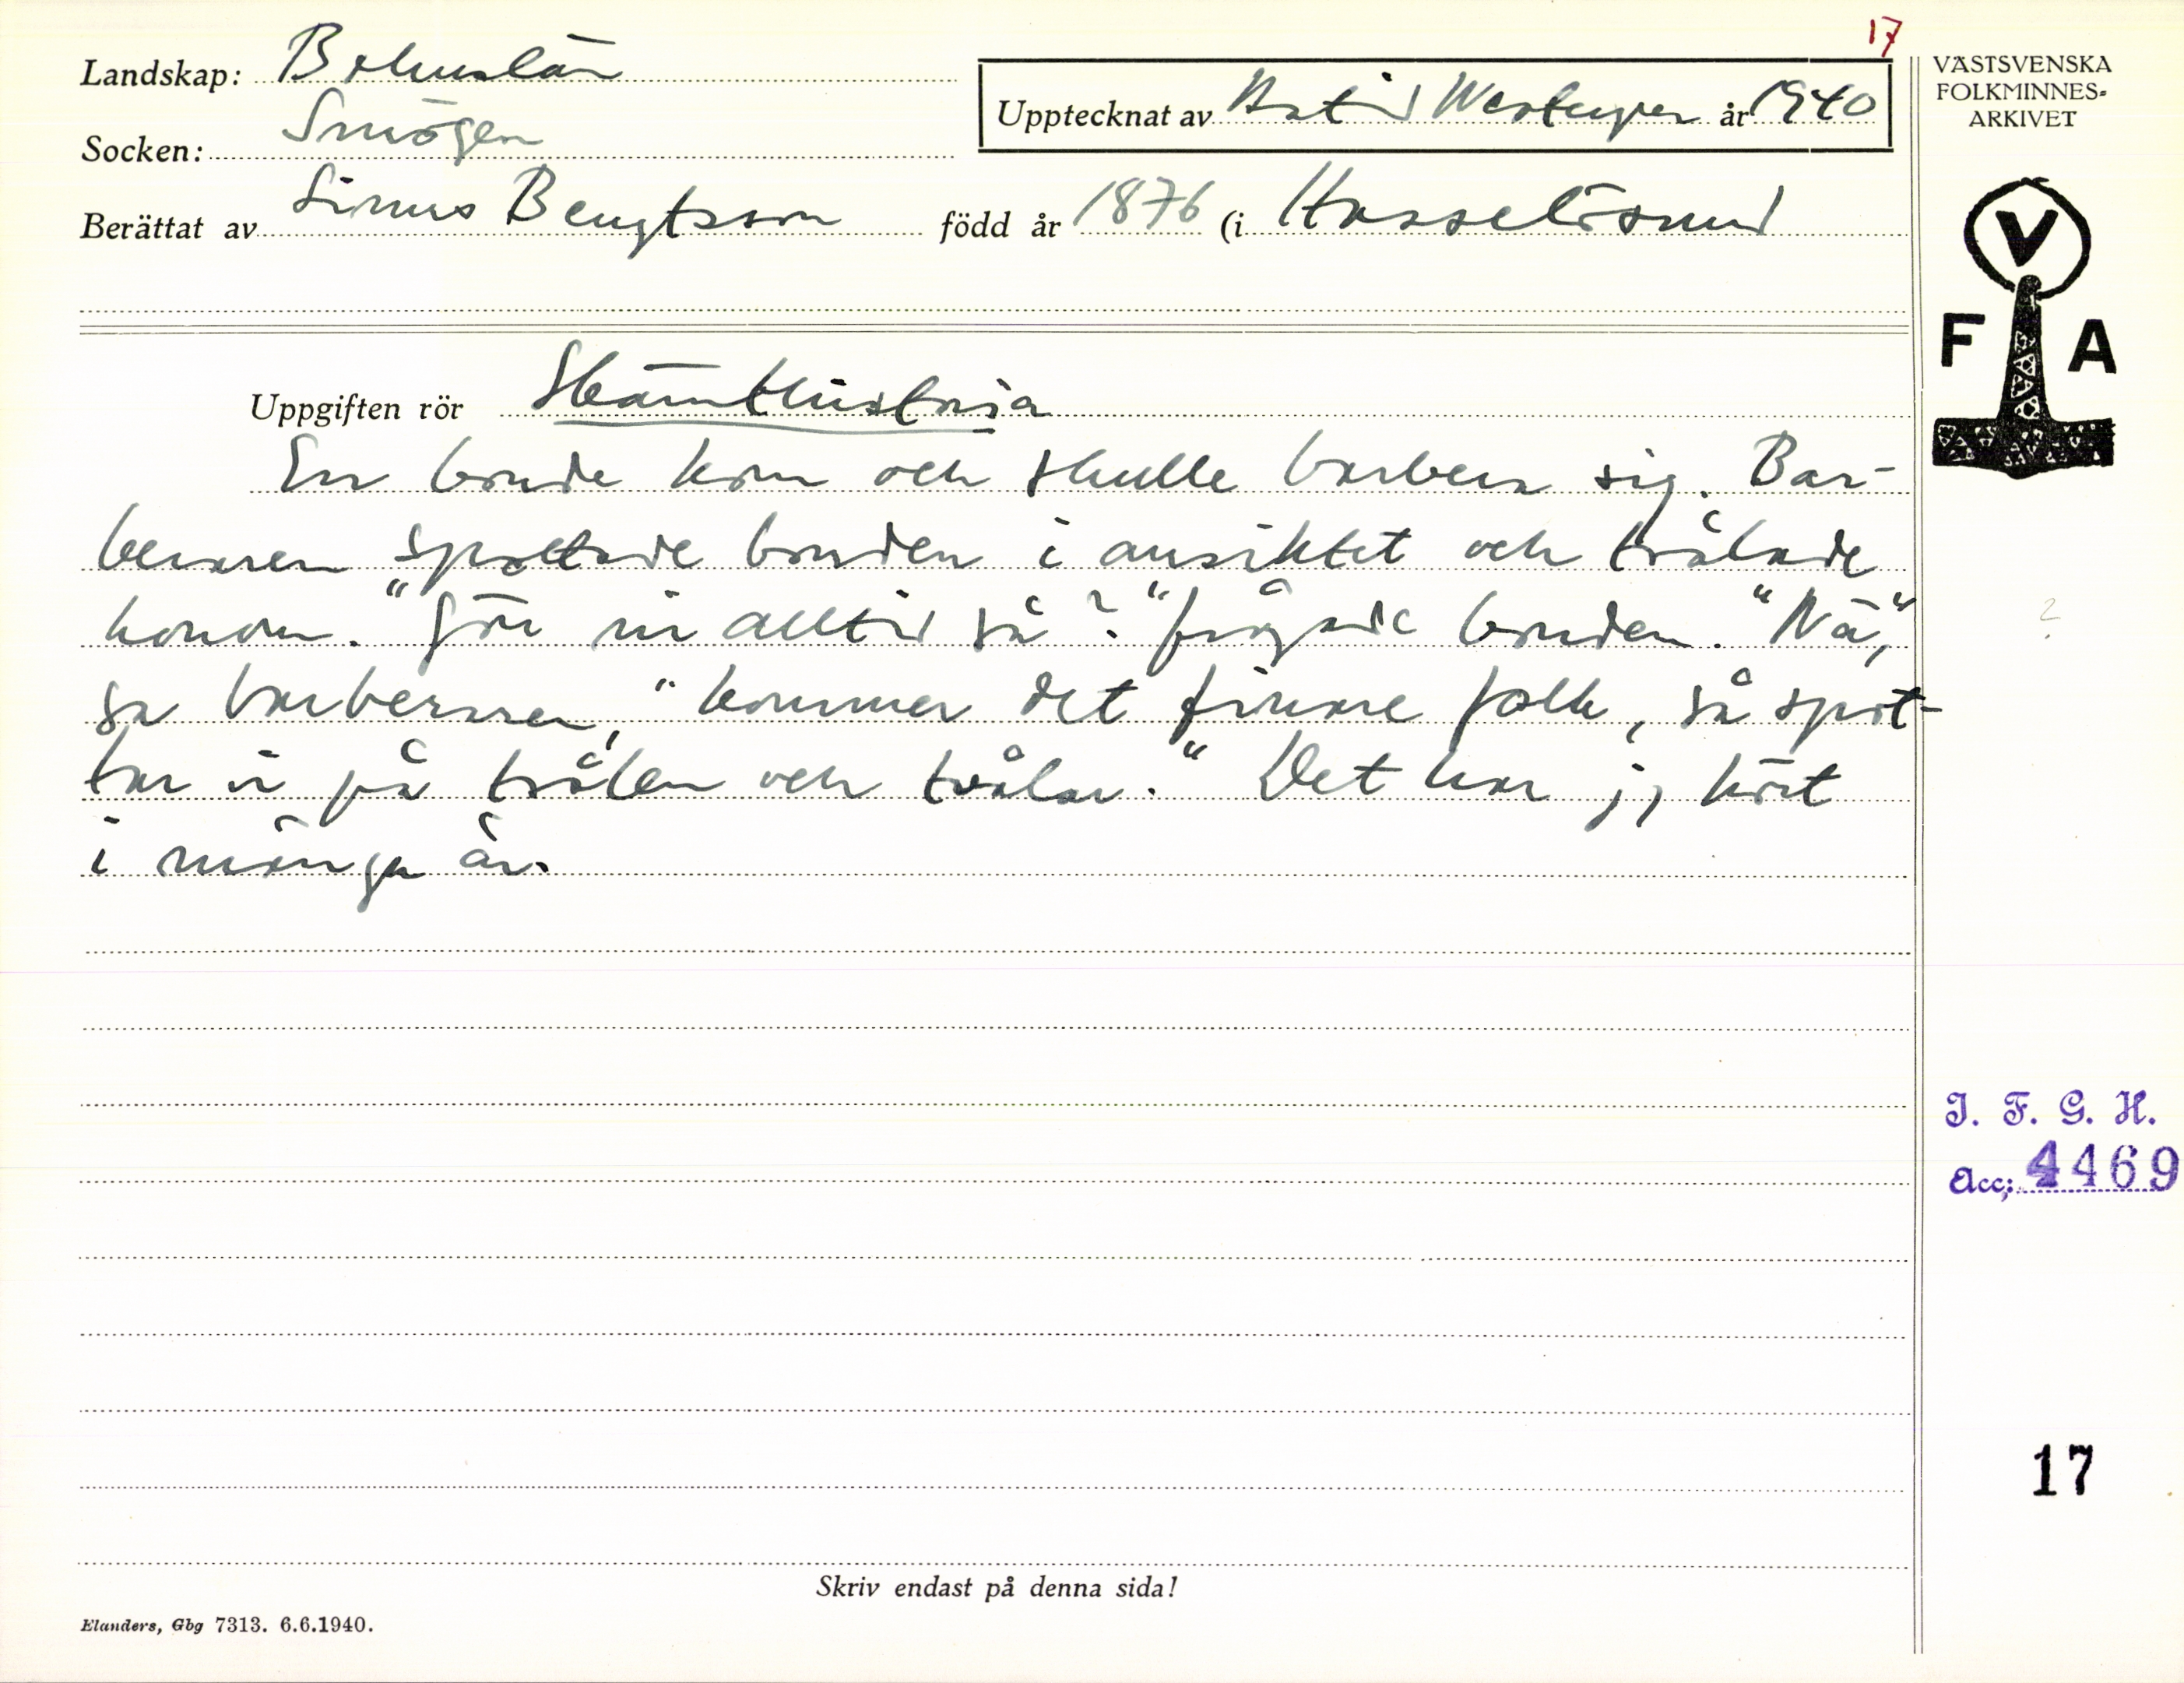 17
Landskap: Bohuslän
Socken: Smögen
Upptecknat av Astrid Westergren år 1940
Berättat av Linus Bengtsson född år 1876 (i Hasselösund
VÄSTSVENSKA
FOLKMINNES-
ARKIVET
V
F A
Uppgiften rör Skämthistoria
En bonde kom och skulle barbera sig. Bar-
beraren spottade bonden i ansiktet och tvålade
honom. "Gör ni alltid så?" frågade bonden. "Nä,"
sa barberaren, "kommer det finare folk, så spot-
tar vi på tvålen och tvålar." Det har jj hört
i många år.
?
I. F. G. H.
Acc: 4469
17
Skriv endast på denna sida!
Elanders, Gbg 7313. 6.6.1940.